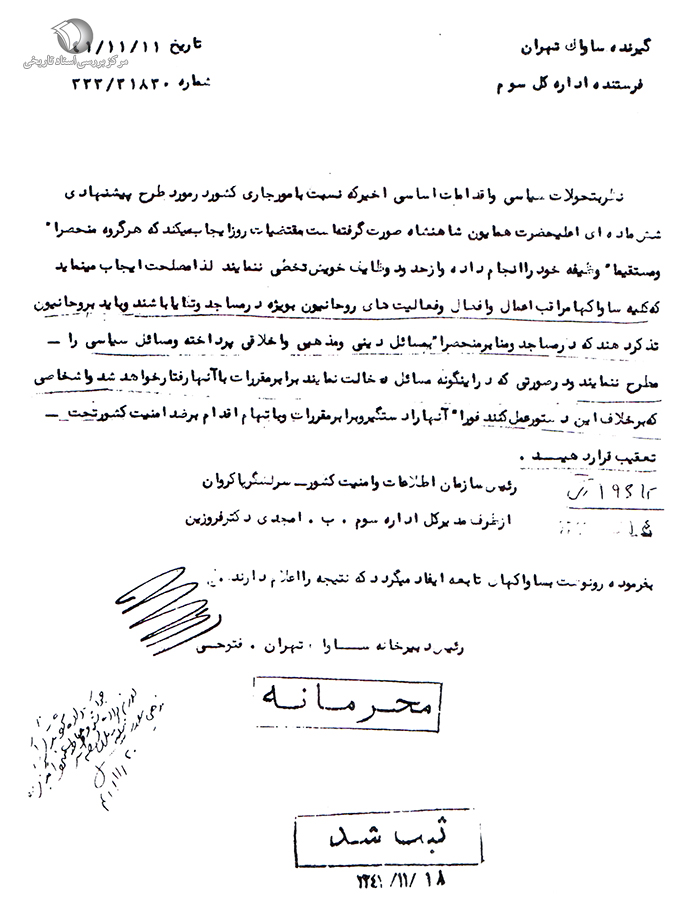 مرکز بررسی اسناد تاریخی
گیرنده ساواك تهران
تاریخ ۴۱/۱۱/۱۱
فرستنده اداره کل سوم
شماره ۳۱۸۳۰/۳۳۳
نظر بتحولات سیاسی و اقدامات اساسی اخیر که نسبت بامور جاری کشور در مورد طرح پیشنهادی
شش ماده ای اعلیحضرت همایون شاهنشاه صورت گرفته است مقتضیات روز ایجاب میکند که هر گروه منحصرا"
ومستقیما" وظیفه خود را انجام داده و از حدود وظایف خویش تخطی ننمایند لذا مصلحت ایجاب مینماید
که کلیه ساواکها مراقب اعمال و افعال و فعالیت های روحانیون بویژه در مساجد وتکایا باشند وباید بروحانیون
تذکر دهند که در مساجد ومنابر منحصرا" بمسائل دینی ومذهبی واخلاقی پرداخته ومسائل سیاسی را ــ
مطرح ننمایند ودر صورتی که در اینگونه مسائل دخالت نمایند برابر مقررات با آنها رفتار خواهد شد واشخاصی
که بر خلاف این دستور عمل کنند فورا" آنها را دستگیر وبرابر مقررات وباتهام اقدام بر ضد امنیت کشور تحت ــ
تعقیب قرار دهید .
رئیس سازمان اطلاعات وامنیت کشور ــ سرلشگر پاکروان
از طرف مدیر کل اداره سوم . ب . امجدی دکتر فروزین
بفرموده رونوشت بساواکهای تابعه ایفاد میگردد که نتیجه را اعلام دارند .
رئیس دبیرخانه ساواك تهران . فتوحی
محرمانه
ثبت شد
۱۳۴۱/۱۱/۱۸